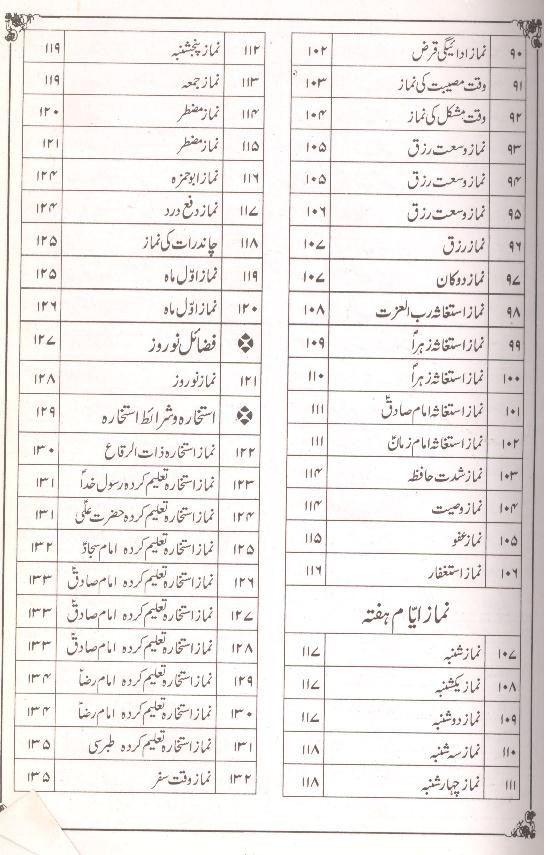 ۹۰ نماز ادائیگی قرض ۱۰۲
۹۱ وقت مصیبت کی نماز ۱۰۳
۹۲ وقت مشکل کی نماز ۱۰۴
۹۳ نماز وسعت رزق ۱۰۵
۹۴ نماز وسعت رزق ۱۰۵
۹۵ نماز وسعت رزق ۱۰۶
۹۶ نماز رزق ۱۰۷
۹۷ نماز دوکان ۱۰۷
۹۸ نماز استغاثہ رب العزت ۱۰۸
۹۹ نماز استغاثہ زہراؑ ۱۰۹
۱۰۰ نماز استغاثہ زہراؑ ۱۱۰
۱۰۱ نماز استغاثہ امام صادقؑ ۱۱۱
۱۰۲ نماز استغاثہ امام زمانؑ ۱۱۱
۱۰۳ نماز شدت حافظہ ۱۱۴
۱۰۴ نماز وصیت ۱۱۴
۱۰۵ نماز عفو ۱۱۵
۱۰۶ نماز استغفار ۱۱۶
نماز ایّام ہفتہ
۱۰۷ نماز شنبہ ۱۱۷
۱۰۸ نماز یکشنبہ ۱۱۷
۱۰۹ نماز دوشنبہ ۱۱۷
۱۱۰ نماز سہ شنبہ ۱۱۸
۱۱۱ نماز چہار شنبہ ۱۱۸
۱۱۲ نماز پنجشنبہ ۱۱۹
۱۱۳ نماز جمعہ ۱۱۹
۱۱۴ نماز مضطر ۱۲۰
۱۱۵ نماز مضطر ۱۲۱
۱۱۶ نماز ابوحمزہ ۱۲۴
۱۱۷ نماز دفع درد ۱۲۴
۱۱۸ چاند رات کی نماز ۱۲۵
۱۱۹ نماز اوّل ماہ ۱۲۵
۱۲۰ نماز اوّل ماہ ۱۲۶
فضائل نوروز ۱۲۷
۱۲۱ نماز نوروز ۱۲۸
استخارہ و شرائط استخارہ ۱۲۹
۱۲۲ نماز استخارہ ذات الرقاع ۱۳۰
۱۲۳ نماز استخارہ تعلیم کردہ رسول خداؐ ۱۳۱
۱۲۴ نماز استخارہ تعلیم کردہ حضرت علیؑ ۱۳۱
۱۲۵ نماز استخارہ تعلیم کردہ امام سجادؑ ۱۳۲
۱۲۶ نماز استخارہ تعلیم کردہ امام صادقؑ ۱۳۳
۱۲۷ نماز استخارہ تعلیم کردہ امام صادقؑ ۱۳۳
۱۲۸ نماز استخارہ تعلیم کردہ امام صادقؑ ۱۳۳
۱۲۹ نماز استخارہ تعلیم کردہ امام رضاؑ ۱۳۴
۱۳۰ نماز استخارہ تعلیم کردہ امام رضاؑ ۱۳۴
۱۳۱ نماز استخارہ تعلیم کردہ طبرسی ۱۳۵
۱۳۲ نماز وقت سفر ۱۳۵